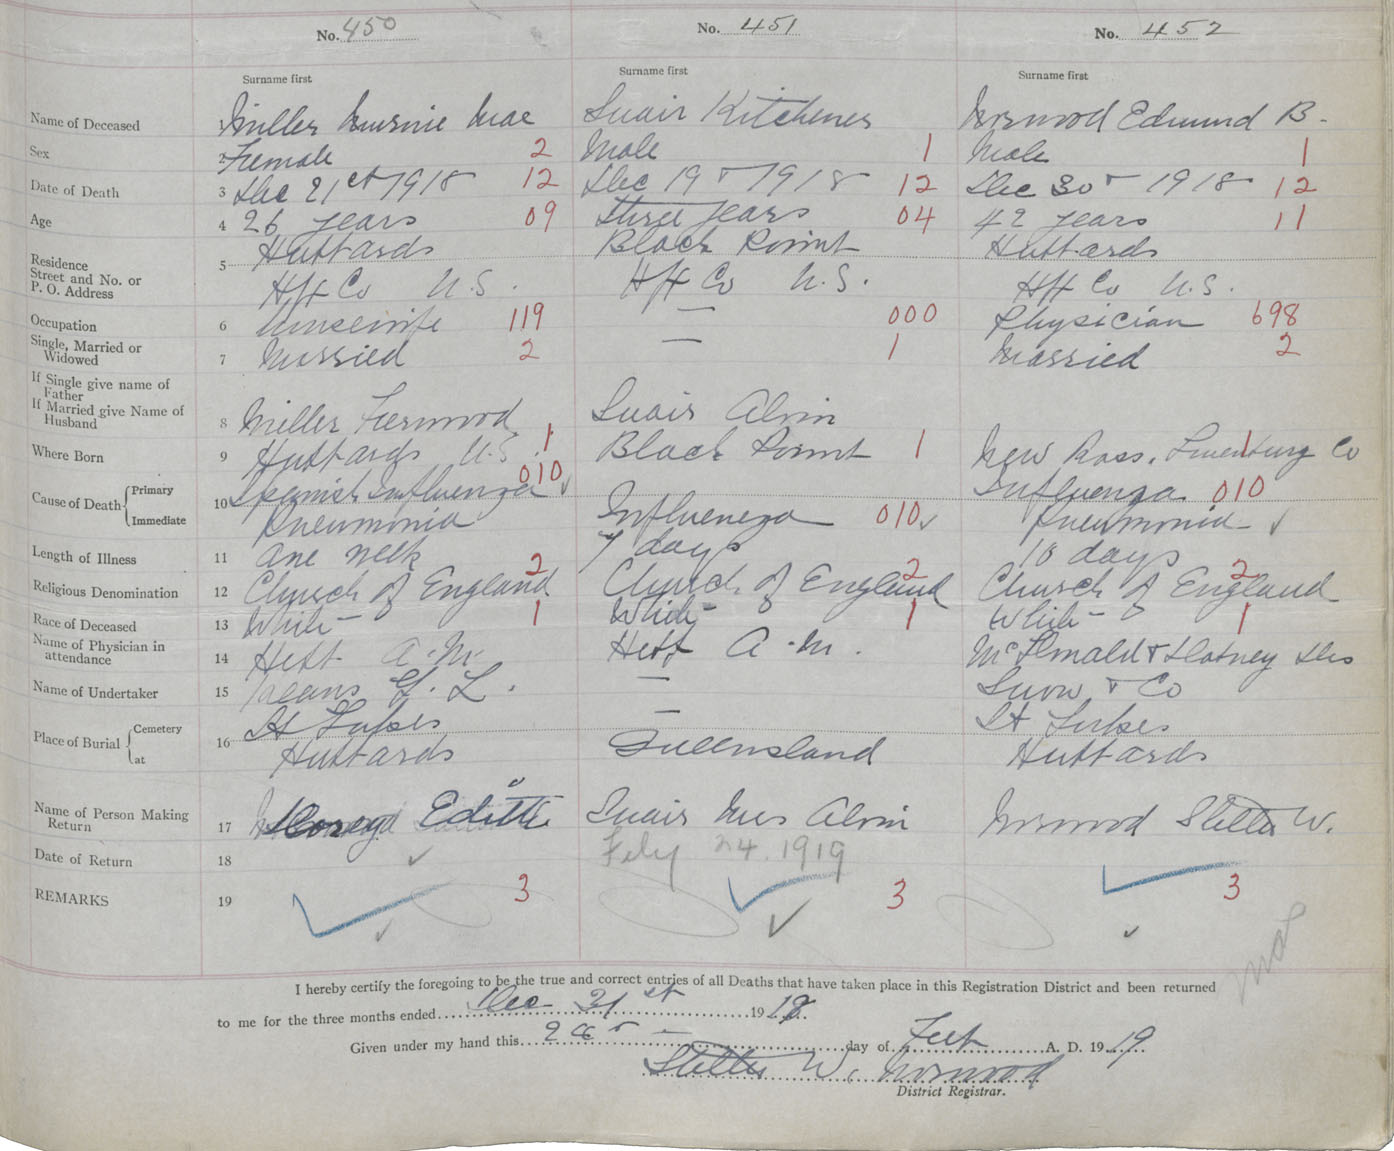 No. 450 No. 451 No. 452
Surname first Surname first Surname first
Name of Deceased 1 Miller Minnie Mae Swair Kitchener Norwood Edmund B.
Sex 2 Female 2 Male 1 Male 1
Date of Death 3 Dec 21st 1918 12 Dec 19 1918 12 Dec 30 1918 12
Age 4 26 years 09 Three years 04 42 years 11
Residence Street and No. or P. O. Address 5 Hubbards Black Point Hubbards
Hfx Co N.S. Hfx Co N.S. Hfx Co N.S.
Occupation 6 Housewife 119 — 000 Physician 698
Single, Married or Widowed 7 Married 2 — 1 Married 2
If Single give name of Father
If Married give Name of Husband 8 Miller Swair Alvin
Where Born 9 Hubbards N.S. 1 Black Point 1 New Ross, Lunenburg Co 1
Cause of Death Primary 10 Spanish Influenza 010 Influenza 010
Immediate Pneumonia Influenza 010 Pneumonia
Length of Illness 11 One week 7 days 10 days
Religious Denomination 12 Church of England 2 Church of England 2 Church of England 2
Race of Deceased 13 White 1 White 1 White 1
Name of Physician in attendance 14 A.M. A.M.
Name of Undertaker 15 — Snow & Co
Place of Burial Cemetery 16 St Lukes — St Lukes
at Hubbards Queensland Hubbards
Name of Person Making Return 17 Edith Swair Mrs Alvin Norwood W.
Date of Return 18 Feby 24. 1919
REMARKS 19 3 3 3
I hereby certify the foregoing to be the true and correct entries of all Deaths that have taken place in this Registration District and been returned
to me for the three months ended Dec 31st 1918
Given under my hand this day of Feb A. D. 1919
W. Norwood
District Registrar.